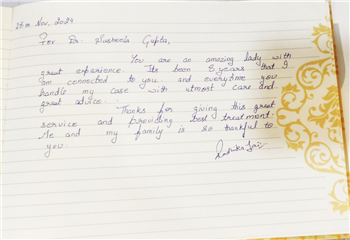 28th Nov, 2024
For Dr. Susheela Gupta,
You are an amazing lady with
great experience. Its been 8 years that I
am connected to you and everytime you
handle my case with utmost care and
great advice.
Thanks for giving this great
service and providing best treatment.
Me and my family is so thankful to
you.